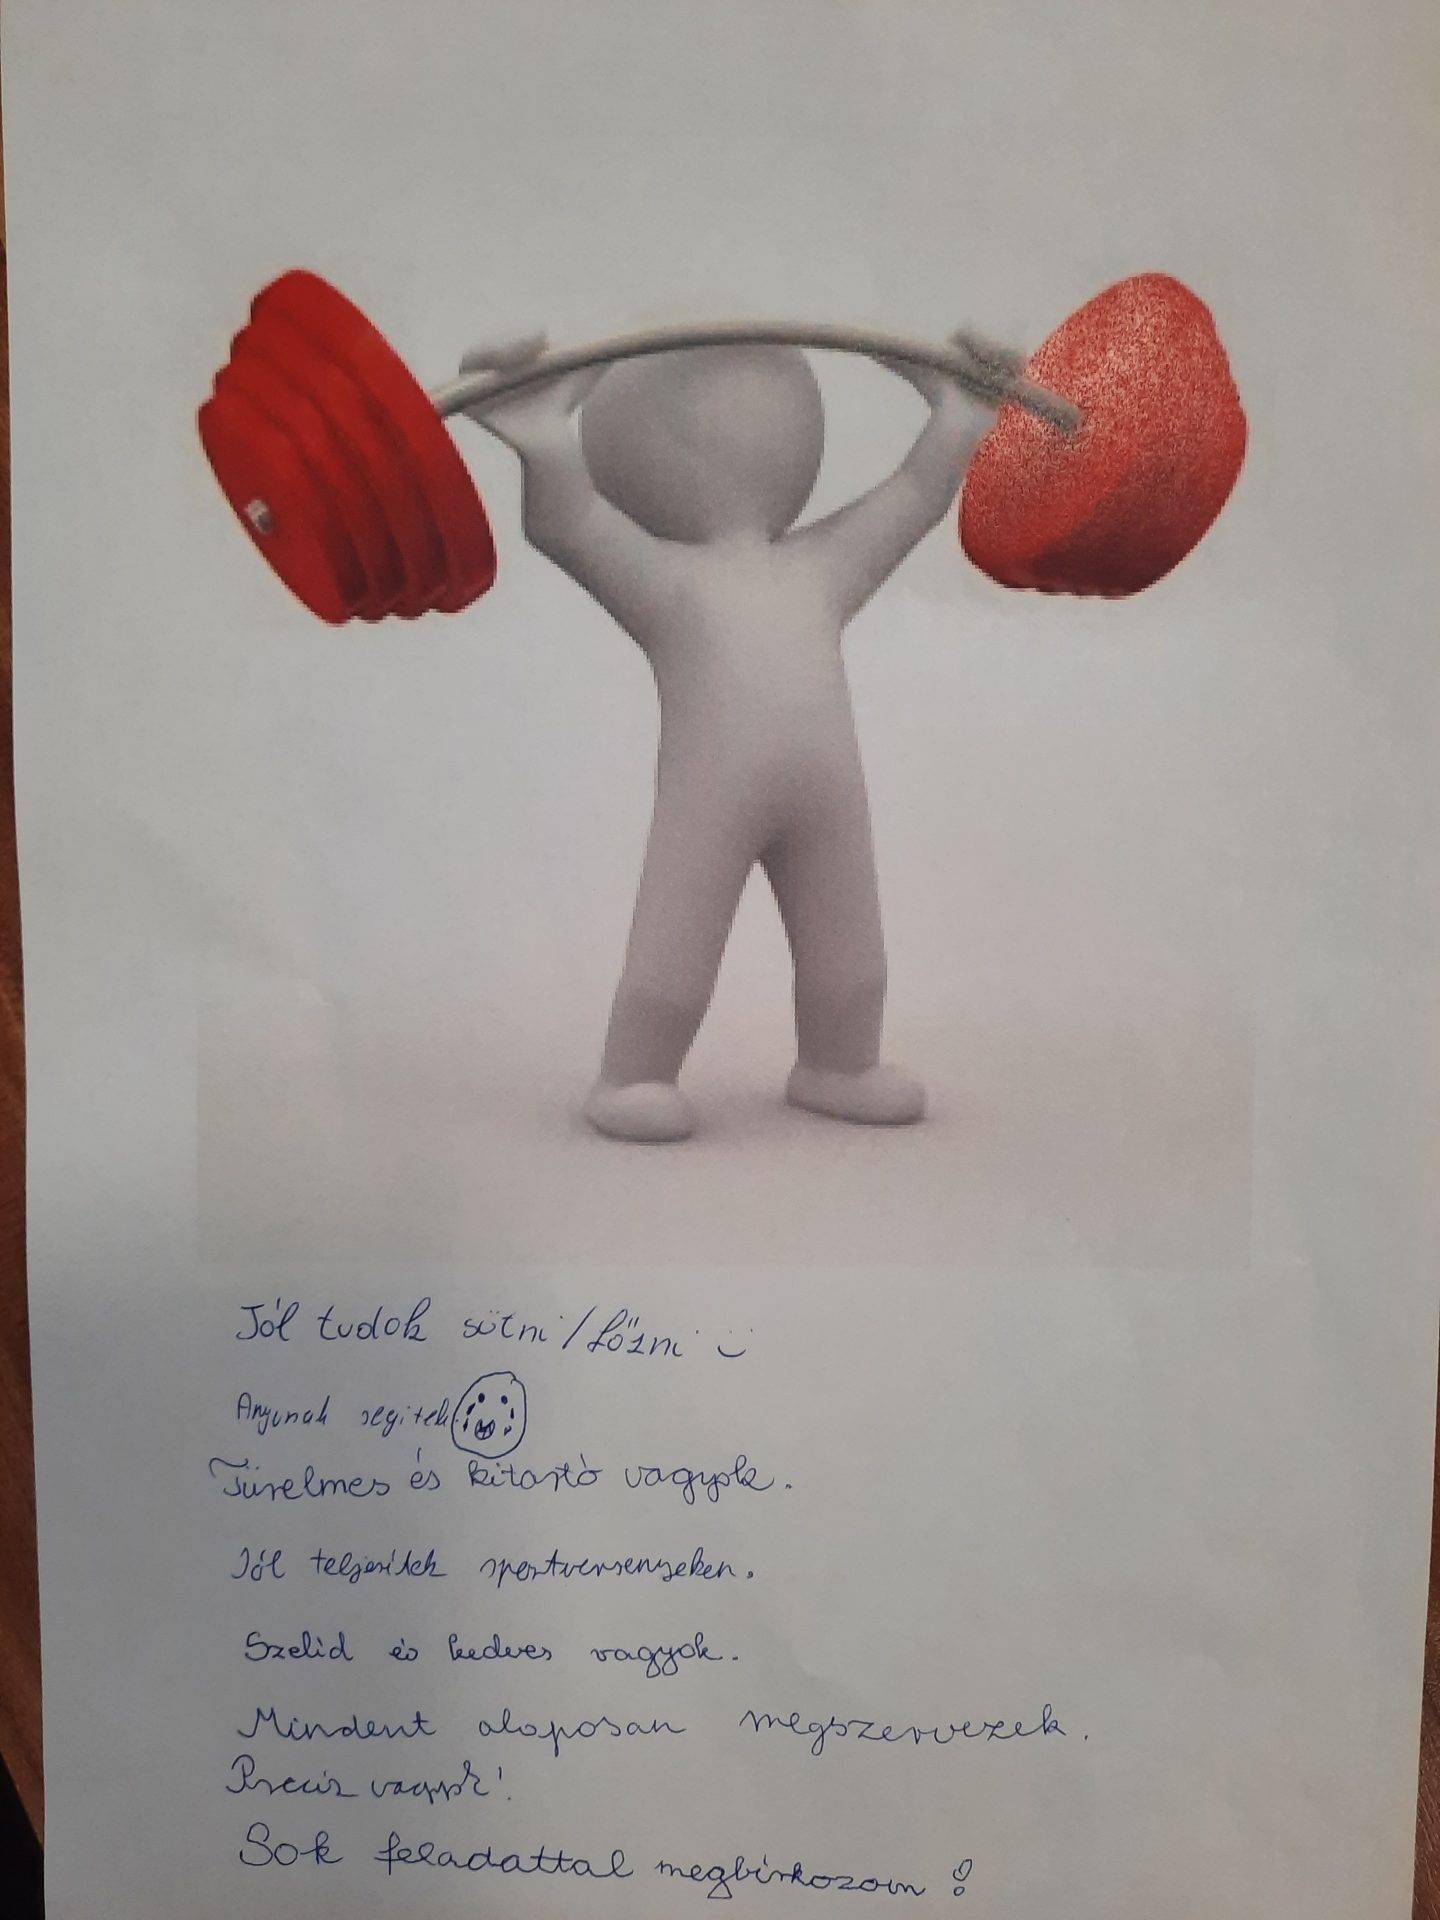 Jól tudok sütni/főzni
Anyunak segitek
Türelmes és kitartó vagyok.
Jól teljesitek sportversenyeken.
Szelid és kedves vagyok.
Mindent alaposan megszervezek.
Preciz vagyok!
Sok feladattal megbirkozom!